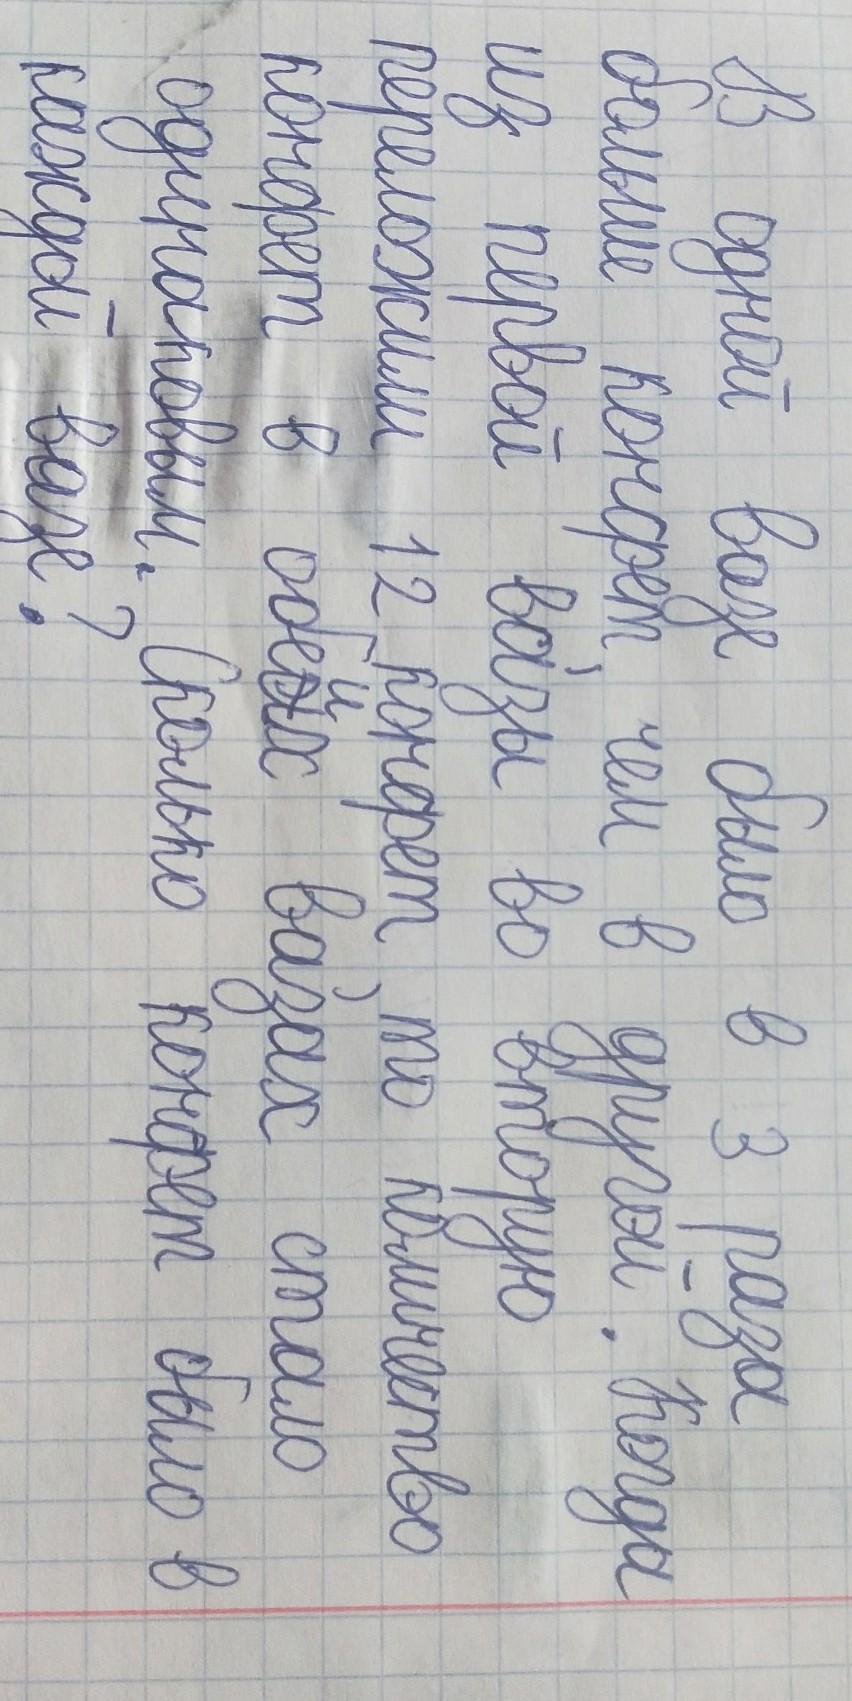 В одной вазе было в 3 раза
больше конфет, чем в другой. Когда
из первой вазы во вторую
переложили 12 конфет, то количество
конфет в обеих вазах стало
одинаковым. Сколько конфет было в
каждой вазе?